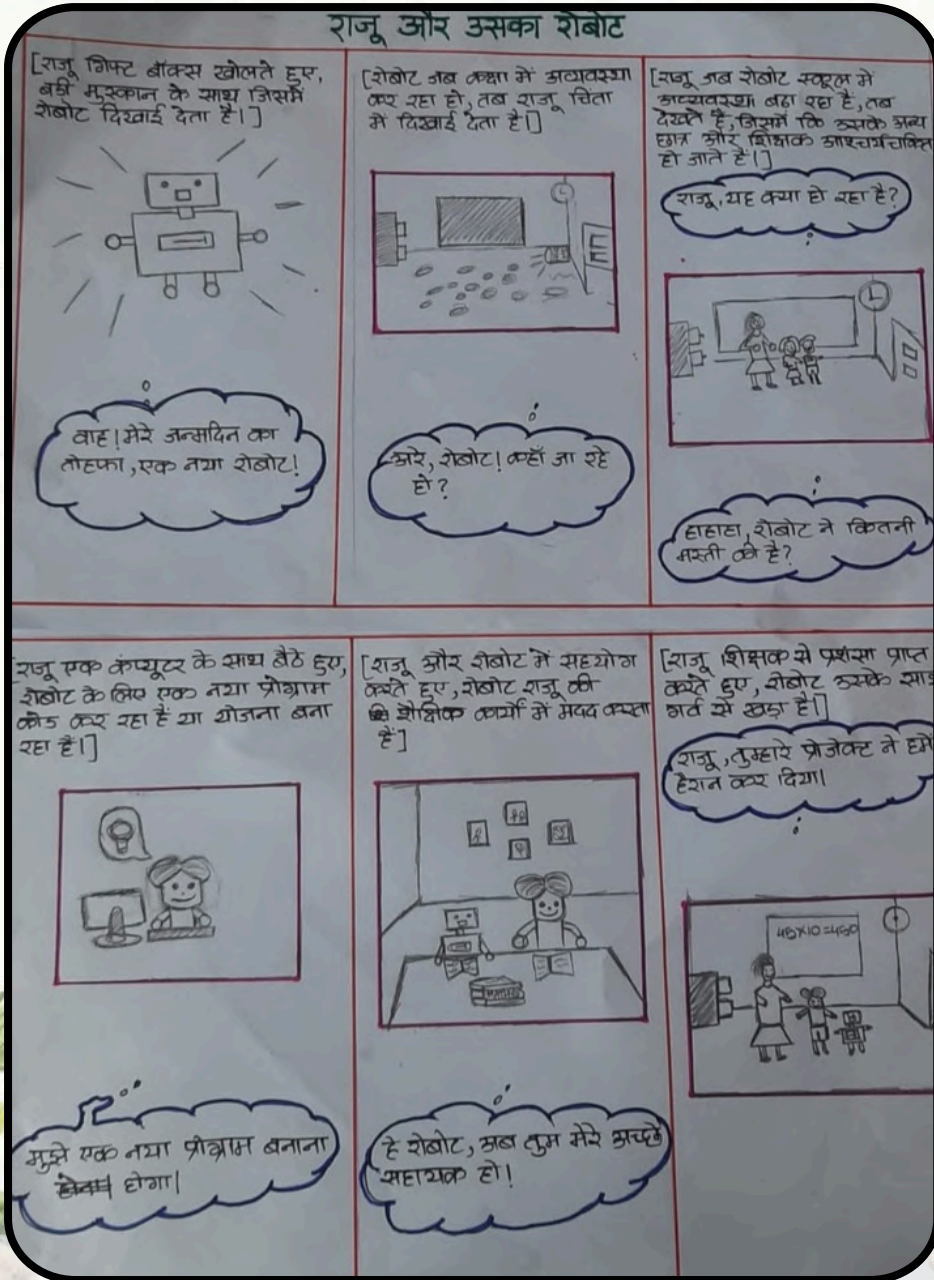 राजू और उसका रोबोट
[राजू गिफ्ट बॉक्स खोलते हुए,
बड़ी मुस्कान के साथ जिसमें
रोबोट दिखाई देता है।]
वाह! मेरे जन्मदिन का
तोहफा, एक नया रोबोट!
[रोबोट जब कक्षा में अव्यवस्था
कर रहा हो, तब राजू चिंता
में दिखाई देता है।]
अरे, रोबोट! कहाँ जा रहे
हो?
[राजू जब रोबोट स्कूल में
अव्यवस्था बढ़ा रहा है, तब
देखते है, जिसमें कि उसके अन्य
छात्र और शिक्षक आश्चर्यचकित
हो जाते हैं।]
राजू, यह क्या हो रहा है?
हाहाहा, रोबोट ने कितनी
मस्ती की है?
[राजू एक कंप्यूटर के साथ बैठे हुए,
रोबोट के लिए एक नया प्रोग्राम
कोड कर रहा हैं या योजना बना
रहा हैं।]
मुझे एक नया प्रोग्राम बनाना
होगा।
[राजू और रोबोट में सहयोग
करते हुए, रोबोट राजू की
शैक्षिक कार्यों में मदद करता
हैं]
हे रोबोट, अब तुम मेरे अच्छे
सहायक हो!
[राजू शिक्षक से प्रशंसा प्राप्त
करते हुए, रोबोट उसके साथ
गर्व से खड़ा है।]
राजू, तुम्हारे प्रोजेक्ट ने हमें
हैरान कर दिया।
45x10=450